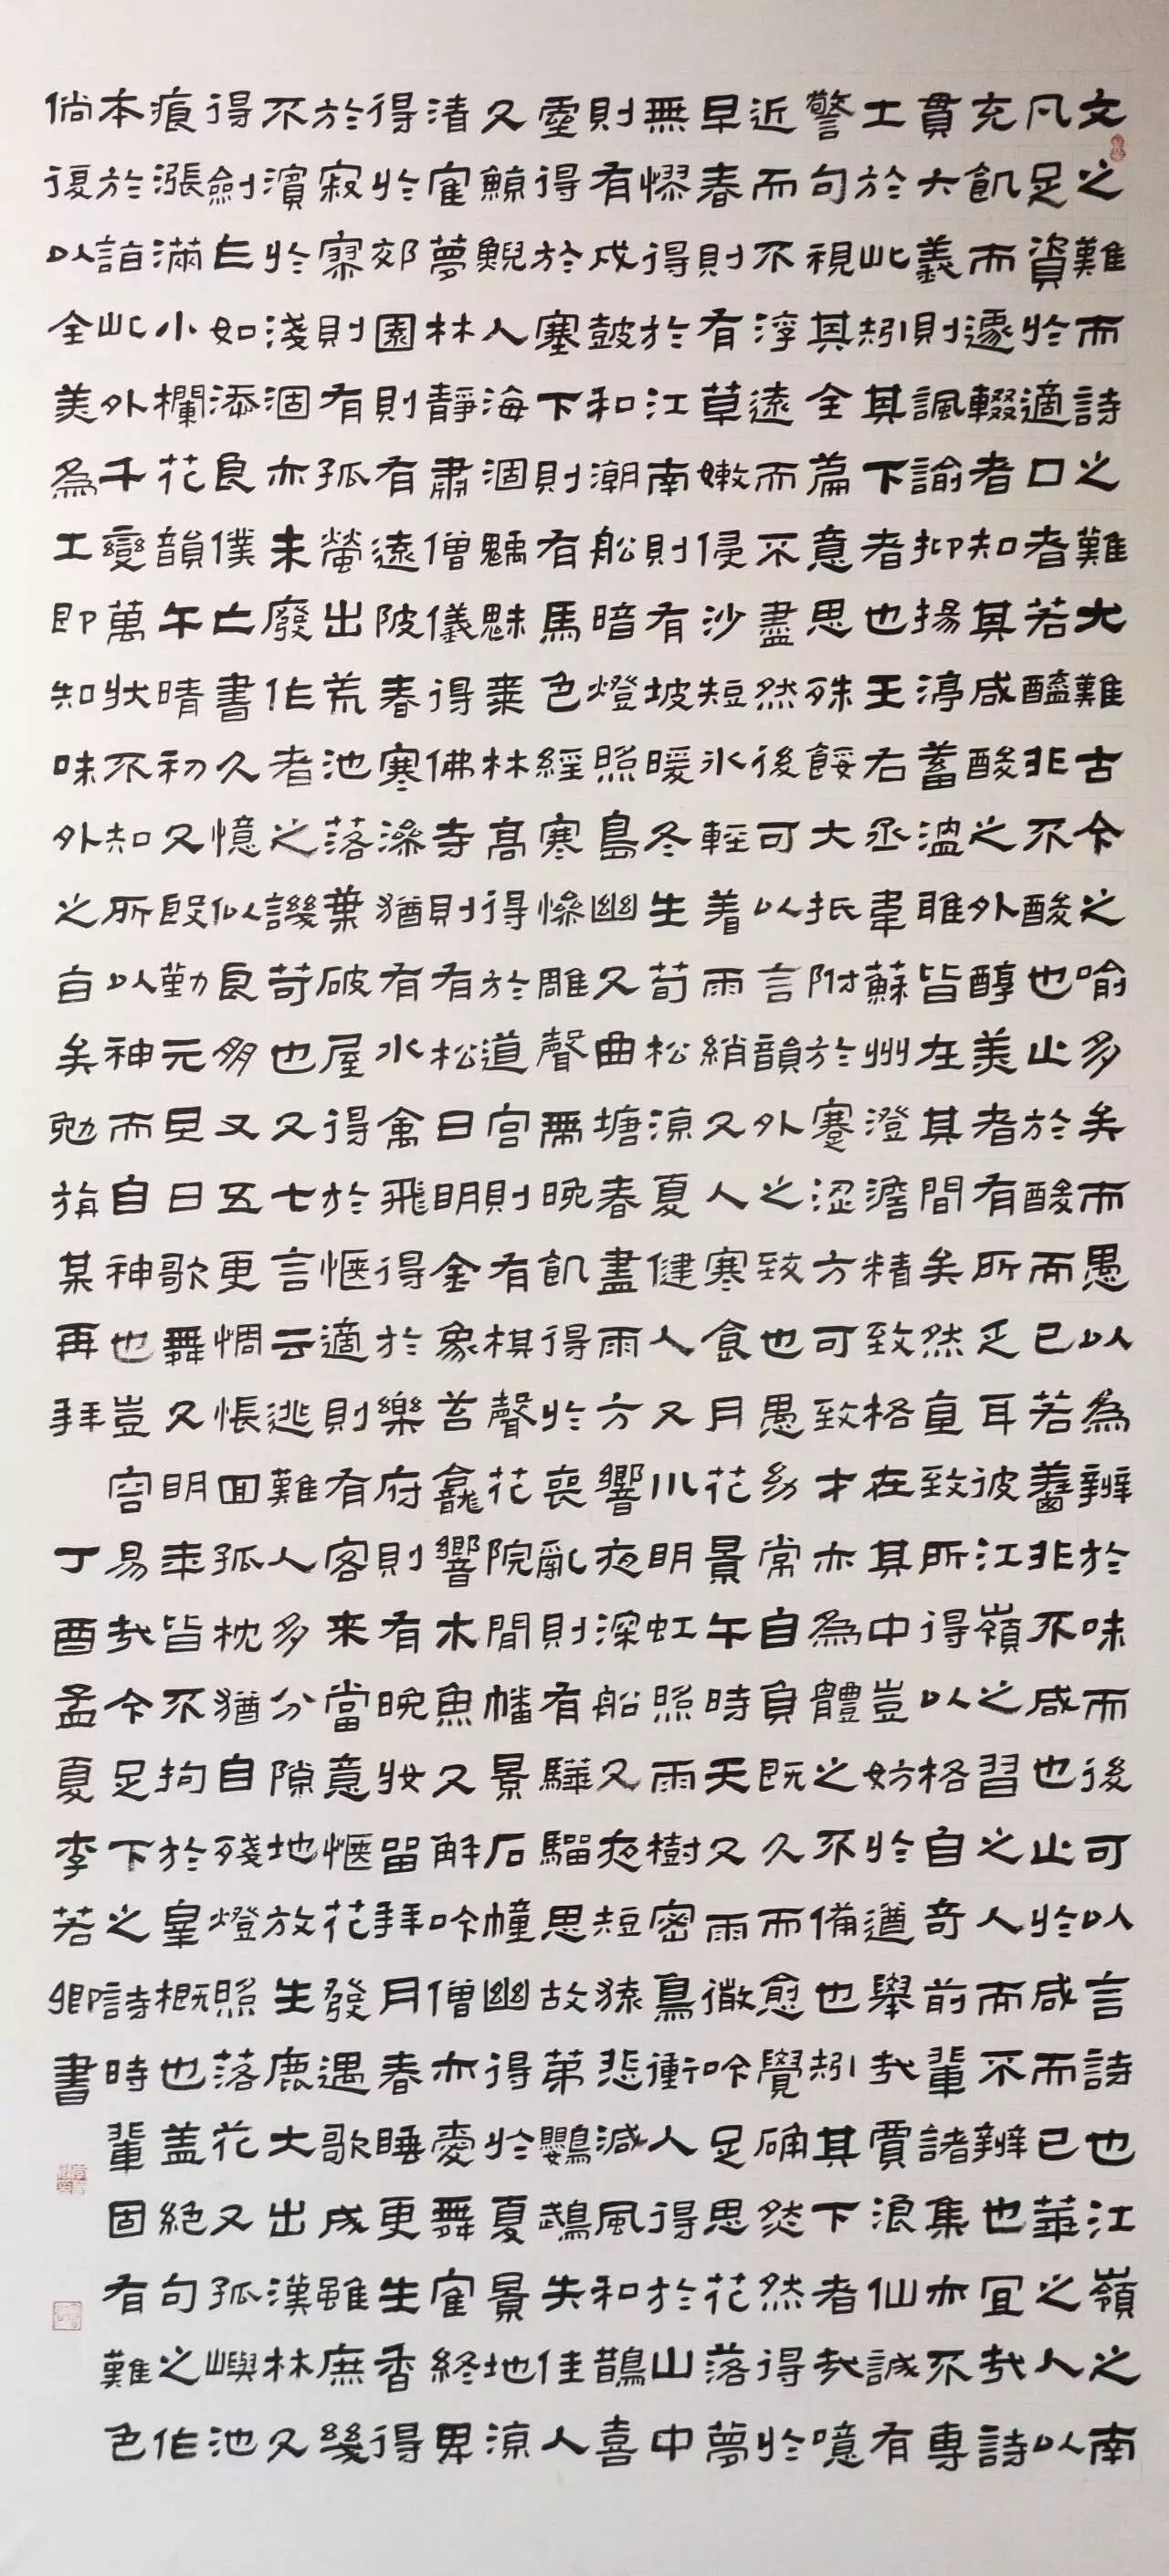 文之難而詩之難尤難古今之喻多矣而愚以為辨於味而後可以言詩也江嶺之南
凡足資於適口者若醯非不酸也止於酸而已若鹺非不咸也止於咸而已華之人以
充飢而遽輟者知其咸酸之外醇美者有所乏耳彼江嶺之習之人而不辨也宜哉詩
貫大義則諷諭抑揚渟蓄溫雅皆在其間矣然直致所得以格自奇前輩諸集亦不專
士於此矧其下者也王右丞韋蘇州澄澹精致格在其中豈妨於遒舉哉賈浪仙誠有
警句視其全篇意思殊餒大抵附於蹇澀方可致才亦為體之不備也矧其下者哉噫
近而不浮遠而不盡然後可以言韻外之致也愚幼常自負既久而愈覺缺然然得於
早春則有草嫩侵沙短冰輕着雨綃又人寒食月花景午時天又雨微吟足思花落夢
無憀得於江南則有坡暖冬生荀松涼夏健人又川明虹照雨樹密鳥衝人得於山中
則有戍鼓和潮船暗燈照島幽又曲塘春盡雨方響夜深船又夜短猿悲減風和鵲喜
靈得於塞下則有馬色經寒慘雕聲帶晚飢得於喪亂則有驊騮思故第鸚鵡失佳人
又鯨鯢人海涸魑魅棘林高得於道宮則有棋聲花院閒幡景石幢幽得於夏景地涼
清寉夢林靜肅僧儀得佛寺則有松日明金象苔龕響木魚又解吟僧亦愛舞寉終卑
得於郊園則有遠陂春寒深猶有水禽飛得於樂府則有晚妝留拜月春睡更生香得
於寂寥則有孤螢出荒池落葉破屋得於愜適則有客来當意愜花發遇歌成雖庶幾
不濱於淺涸亦未廢作者之譏苛也又七言云逃難人多分隙地放生鹿大出漢林又
得劍亡如添良僕亡書久憶似良朋又五更惆悵回孤枕猶自殘燈照落花又孤嶼池
痕漲滿小欄花韻午晴初又殷勤元旦日歌舞又明年皆不拘於皇概也蓋絕句之作
本於詣此外千變萬狀不知所以神而自神也豈容易哉今足下之詩時輩固有難色
倘復以全美為工即知味外之旨矣勉旃某再拜 丁酉孟夏李若卿書